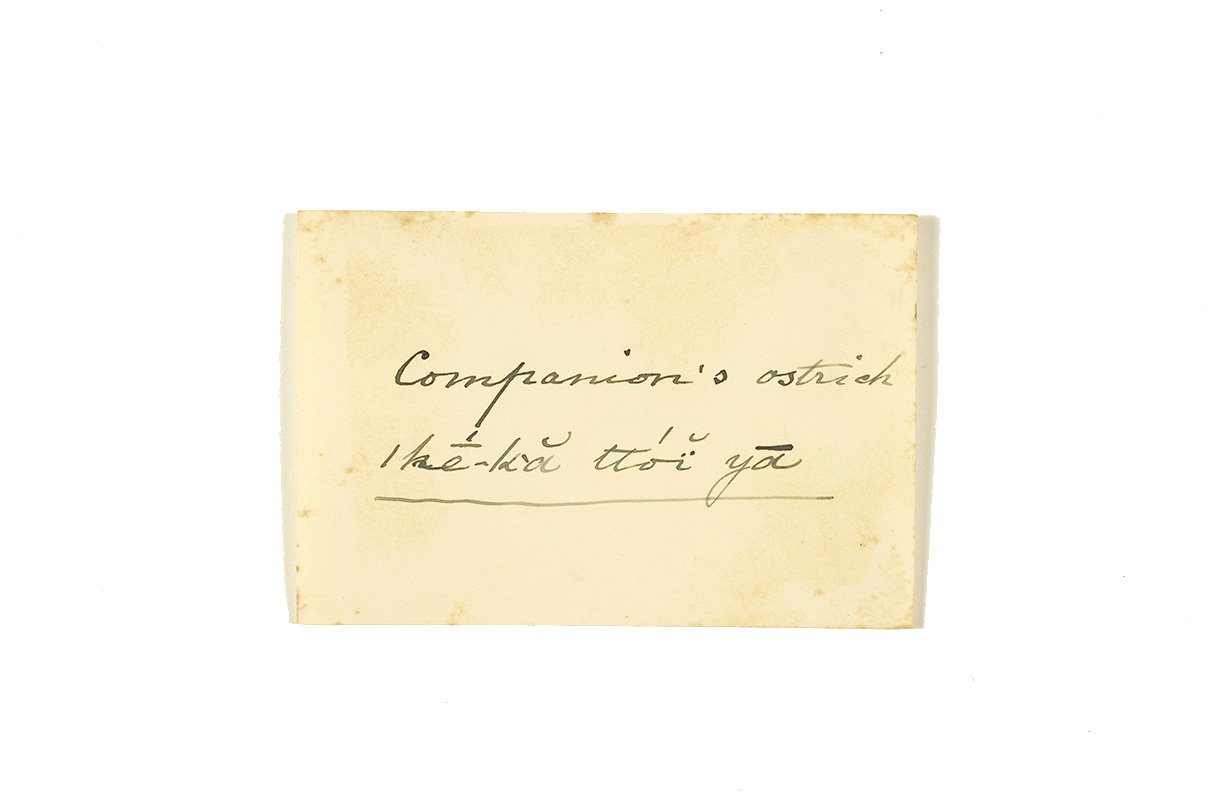 Companion's ostrich
|kḗ-kă ttóĭ̈ yā